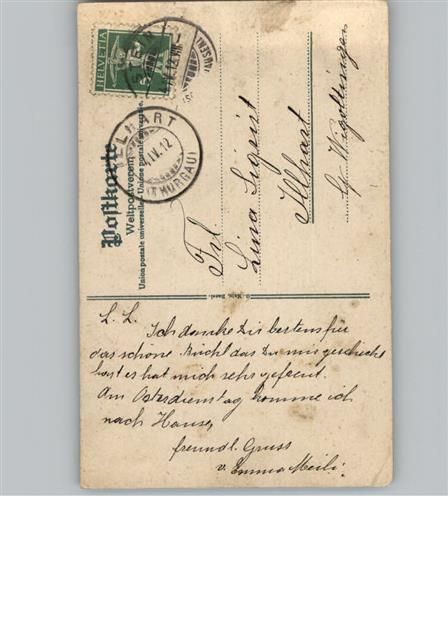 HELVETIA
5
ILLHART
IV.12
(THURGAU)
Postkarte
Weltpostverein
Union postale universelle
Frl.
Lina Sigrist
Illhart
b/ Wigoltingen
L. L. Ich danke Dir bestens für
das schöne Buchl das Du mir geschickt
hast es hat mich sehr gefreut.
Am Osterdienstag komme ich
nach Hause,
freundl. Gruss
v. Emma Meili.